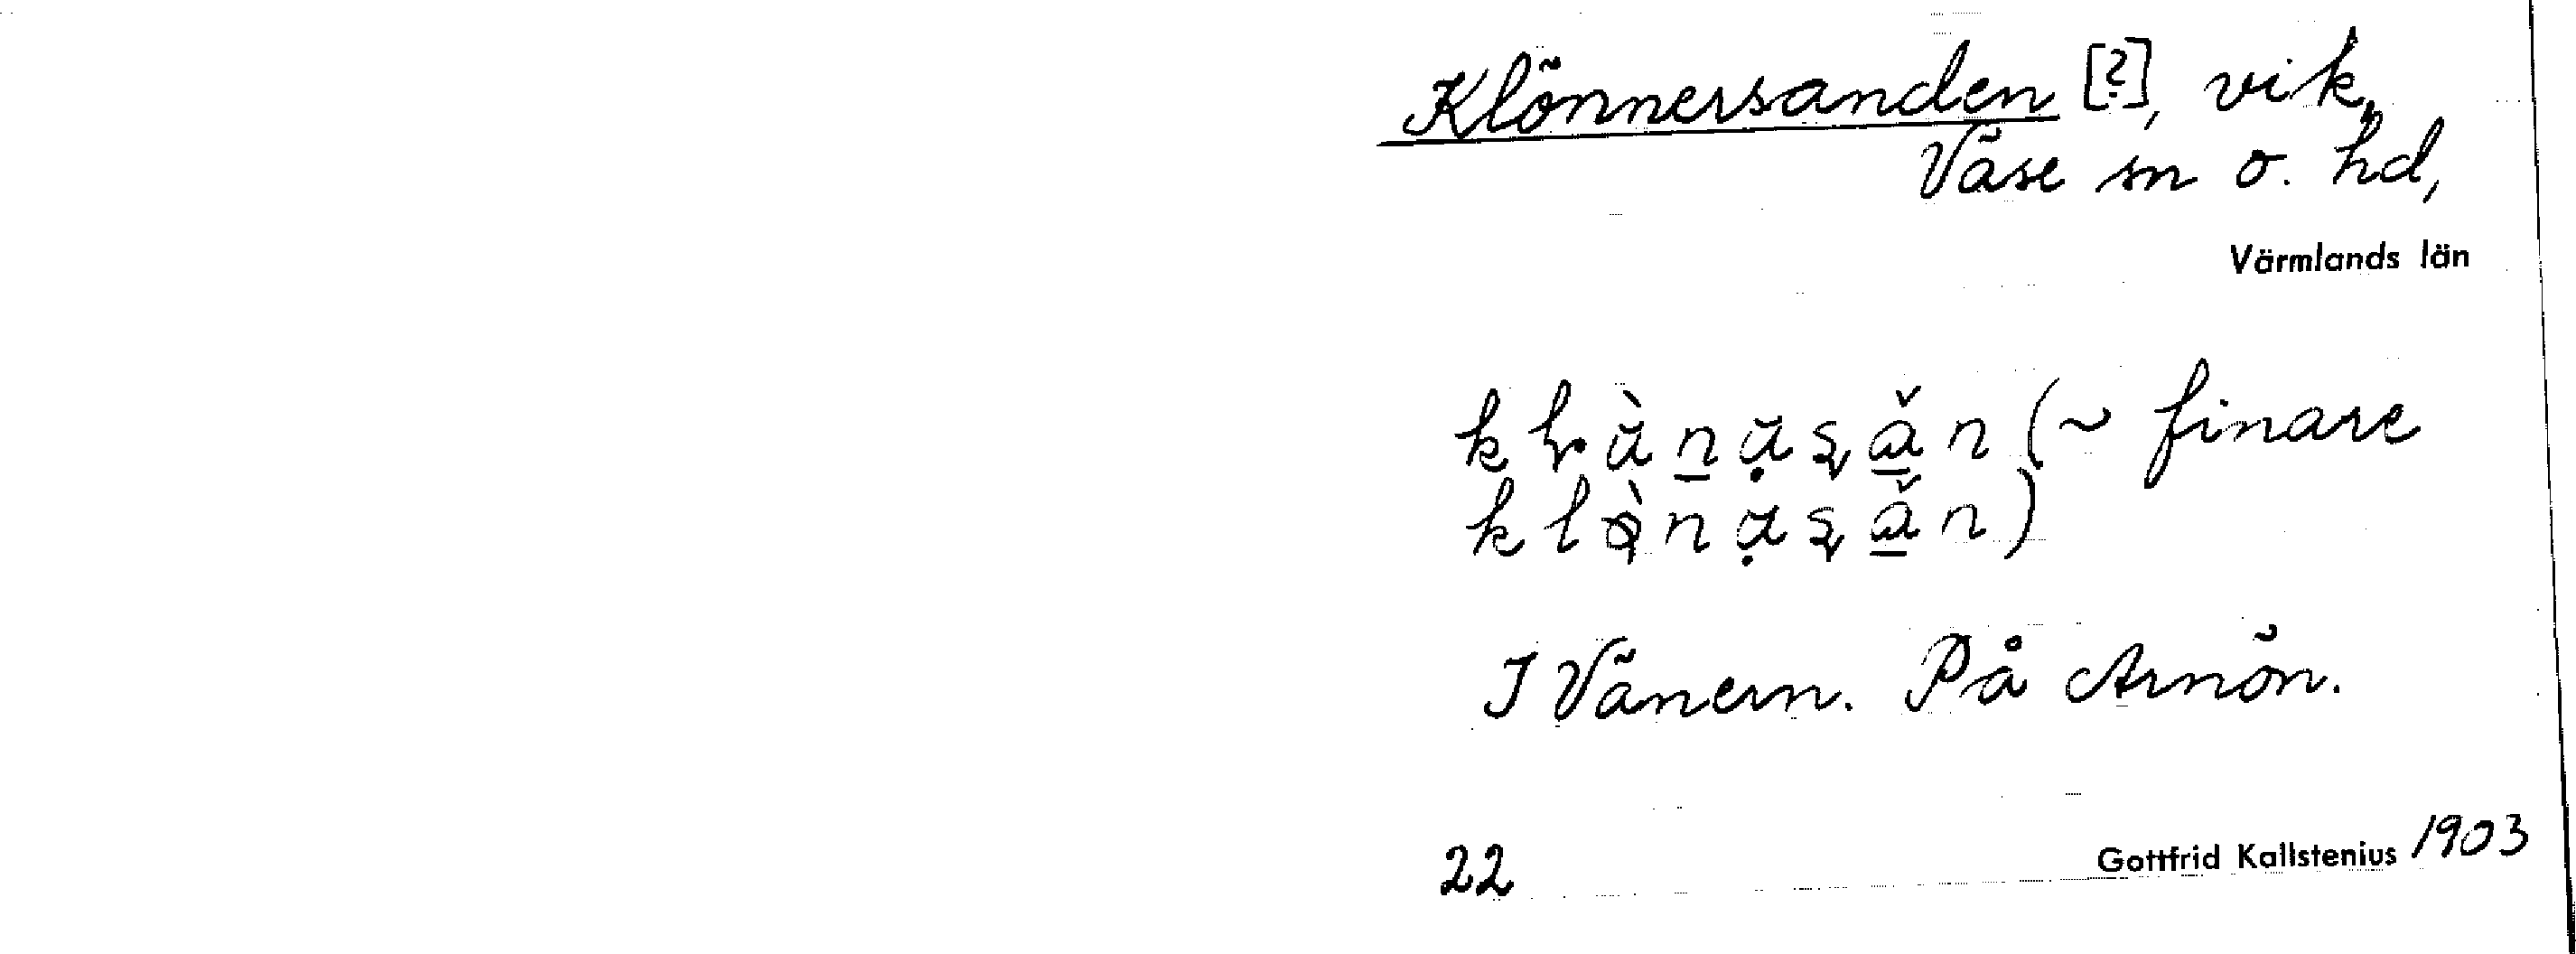 Klönnersanden [?], vik,
Väse sn o. hd,
Värmlands län
(~ finare
I Vänern. På Arnön.
22 Gottfrid Kallstenius 1903